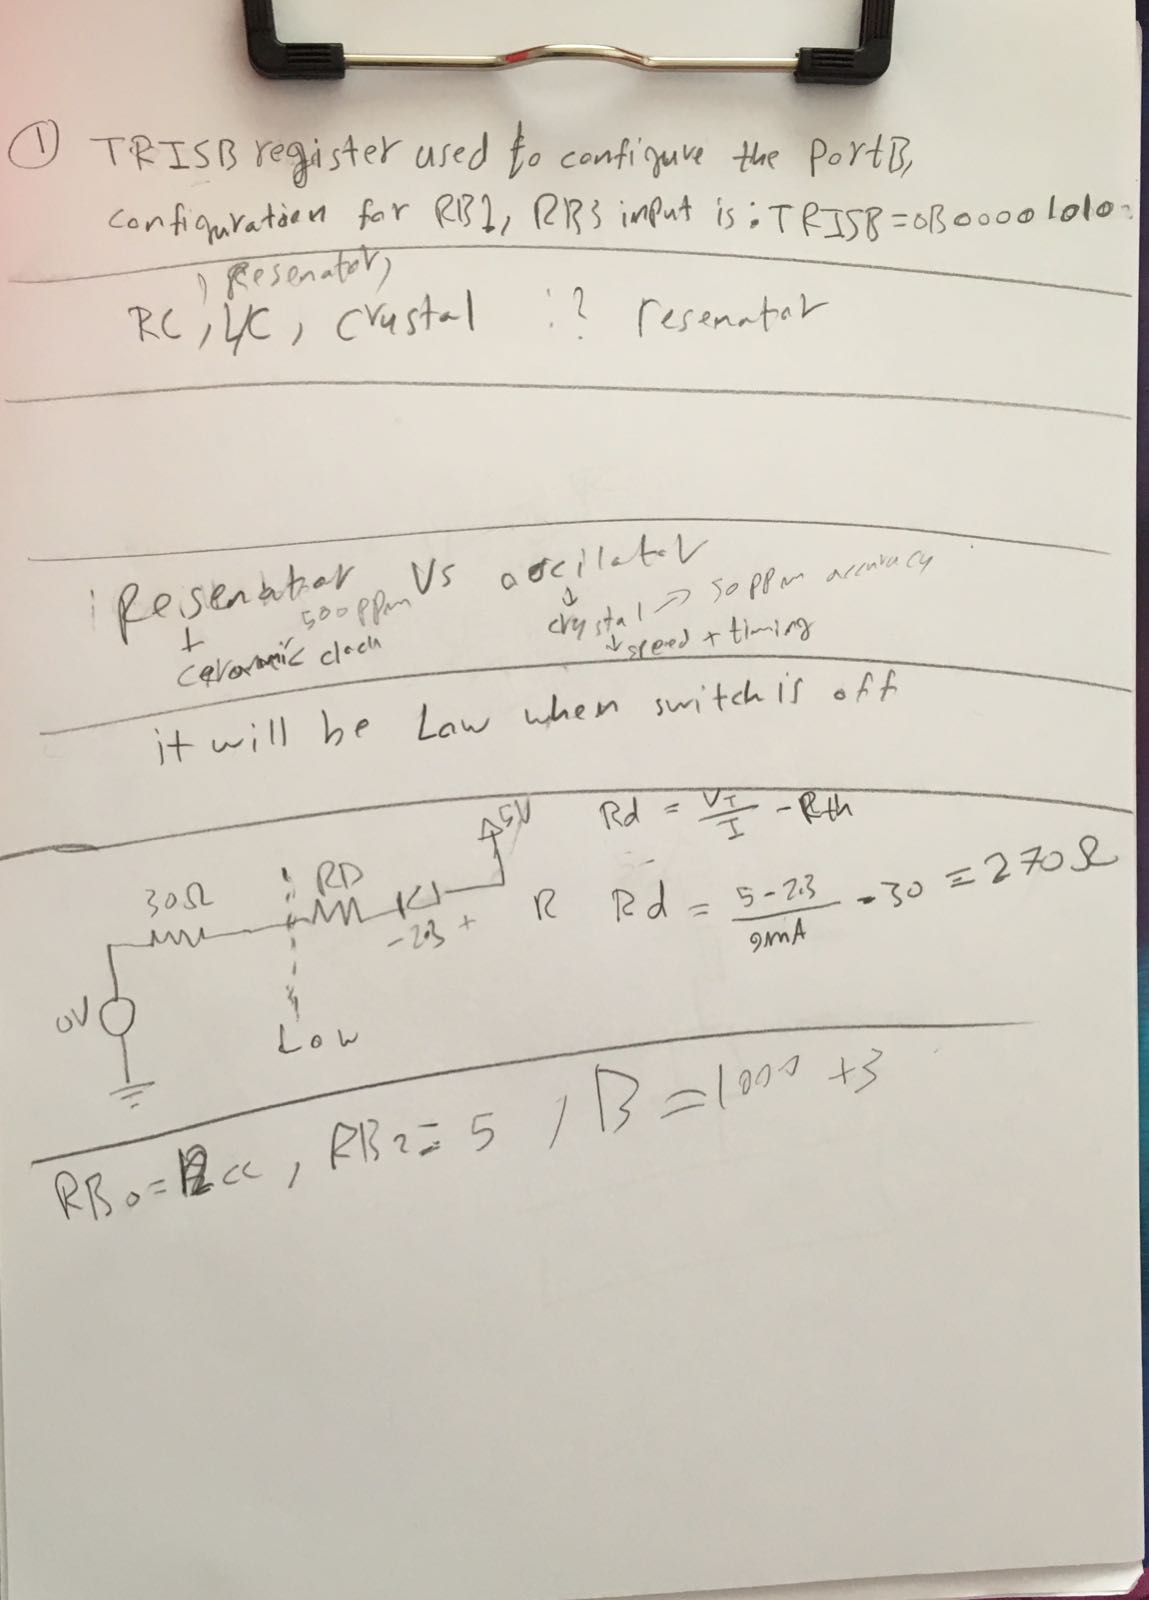 1 TRISB register used to configure the PortB,
configuration for RB1, RB3 input is : TRISB=0B00001010
, Resenator,
RC, LC, crystal : ? resenator
Resenator Vs oscilator
500ppm crystal → 50 ppm accuracy
ceramic clock speed + timing
it will be Low when switch is off
5V Rd = VT/I - Rth
30Ω RD
-2.3 + R Rd = 5-2.3/9mA - 30 = 270Ω
0V
Low
RB0= cc, RB2= 5, B=1000 +3